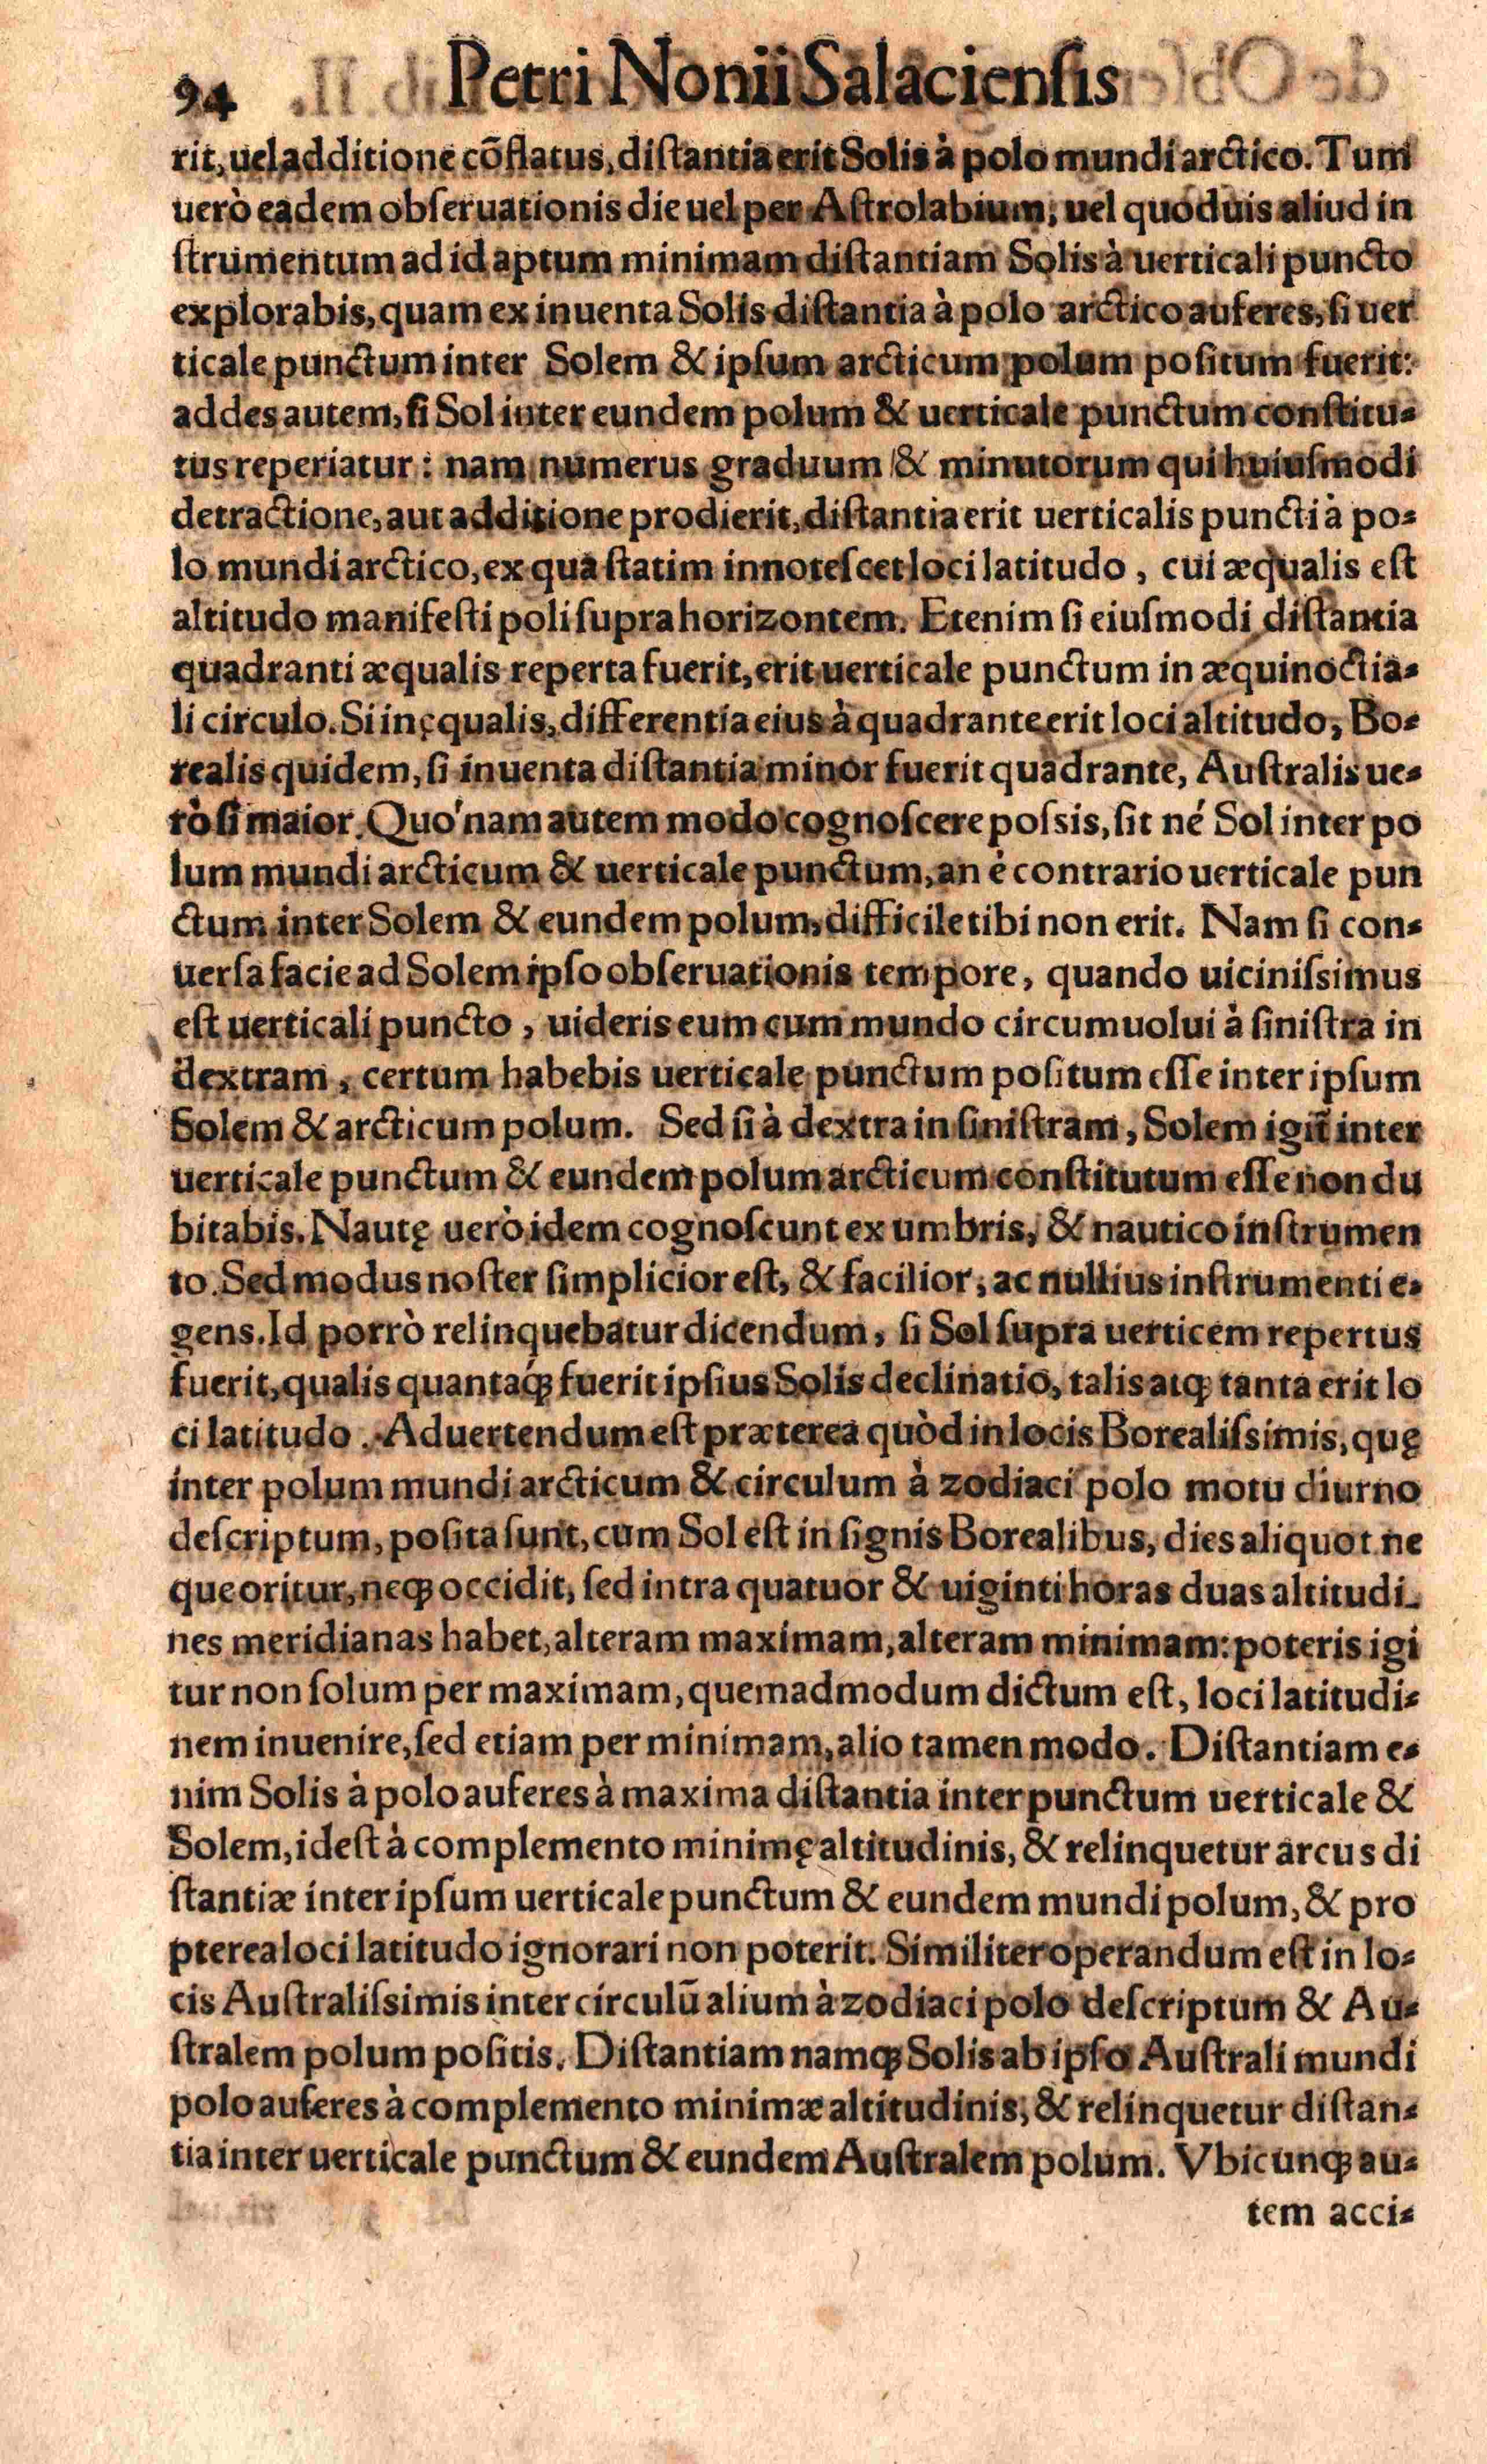 94 Petri Nonii Salaciensis
rit, uel additione cõflatus, distantia erit Solis à polo mundi arctico. Tum
uerò eadem obseruationis die uel per Astrolabium, uel quoduis aliud in
strumentum ad id aptum minimam distantiam Solis à uerticali puncto
explorabis, quam ex inuenta Solis distantia à polo arctico auferes, si uer
ticale punctum inter Solem & ipsum arcticum polum positum fuerit:
addes autem, si Sol inter eundem polum & uerticale punctum constitu-
tus reperiatur: nam numerus graduum & minutorum qui huiusmodi
detractione, aut additione prodierit, distantia erit uerticalis puncti à po-
lo mundi arctico, ex qua statim innotescet loci latitudo, cui æqualis est
altitudo manifesti poli supra horizontem. Etenim si eiusmodi distantia
quadranti æqualis reperta fuerit, erit uerticale punctum in æquinoctia-
li circulo. Si inęqualis, differentia eius à quadrante erit loci altitudo, Bo-
realis quidem, si inuenta distantia minor fuerit quadrante, Australis ue-
rò si maior. Quo'nam autem modo cognoscere possis, sit né Sol inter po
lum mundi arcticum & uerticale punctum, an è contrario uerticale pun
ctum inter Solem & eundem polum, difficile tibi non erit. Nam si con-
uersa facie ad Solem ipso obseruationis tempore, quando uicinissimus
est uerticali puncto, uideris eum cum mundo circumuolui à sinistra in
dextram, certum habebis uerticale punctum positum esse inter ipsum
Solem & arcticum polum. Sed si à dextra in sinistram, Solem igit̃ inter
uerticale punctum & eundem polum arcticum constitutum esse non du
bitabis. Nautę uerò idem cognoscunt ex umbris, & nautico instrumen
to. Sed modus noster simplicior est, & facilior, ac nullius instrumenti e-
gens. Id porrò relinquebatur dicendum, si Sol supra uerticem repertus
fuerit, qualis quantáq; fuerit ipsius Solis declinatio, talis atq; tanta erit lo
ci latitudo. Aduertendum est præterea quòd in locis Borealissimis, quę
inter polum mundi arcticum & circulum à zodiaci polo motu diurno
descriptum, posita sunt, cum Sol est in signis Borealibus, dies aliquot ne
que oritur, neq; occidit, sed intra quatuor & uiginti horas duas altitudi-
nes meridianas habet, alteram maximam, alteram minimam: poteris igi
tur non solum per maximam, quemadmodum dictum est, loci latitudi-
nem inuenire, sed etiam per minimam, alio tamen modo. Distantiam e-
nim Solis à polo auferes à maxima distantia inter punctum uerticale &
Solem, id est à complemento minimę altitudinis, & relinquetur arcus di
stantiæ inter ipsum uerticale punctum & eundem mundi polum, & pro
pterea loci latitudo ignorari non poterit. Similiter operandum est in lo-
cis Australissimis inter circulũ alium à zodiaci polo descriptum & Au-
stralem polum positis. Distantiam namq; Solis ab ipso Australi mundi
polo auferes à complemento minimæ altitudinis, & relinquetur distan-
tia inter uerticale punctum & eundem Australem polum. Vbicunq; au-
tem acci-